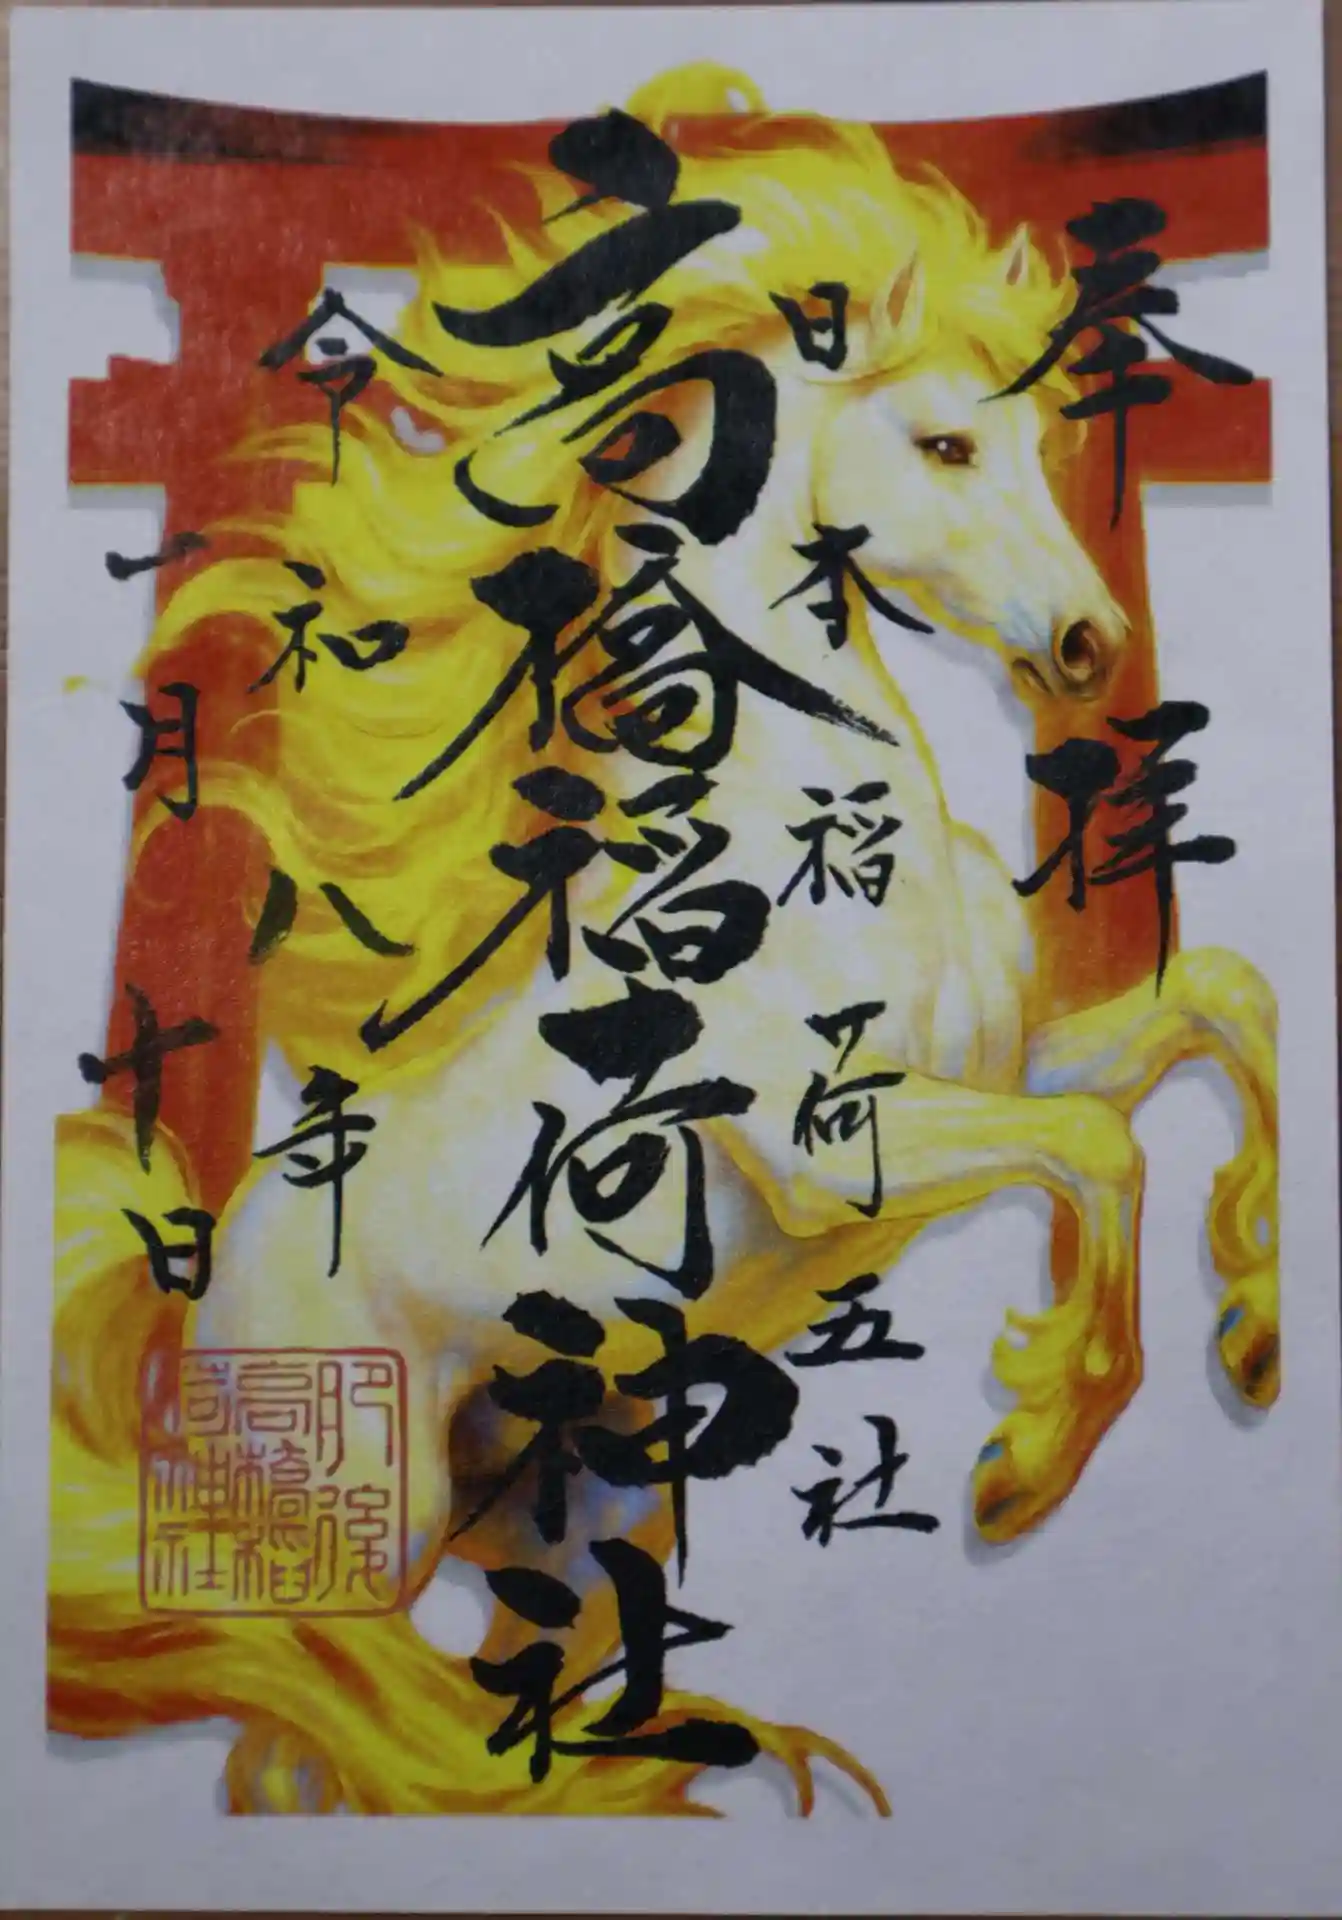 奉拝
日本稲荷五社
高橋稲荷神社
令和八年
二月十日
肥後
高橋稲
荷神社